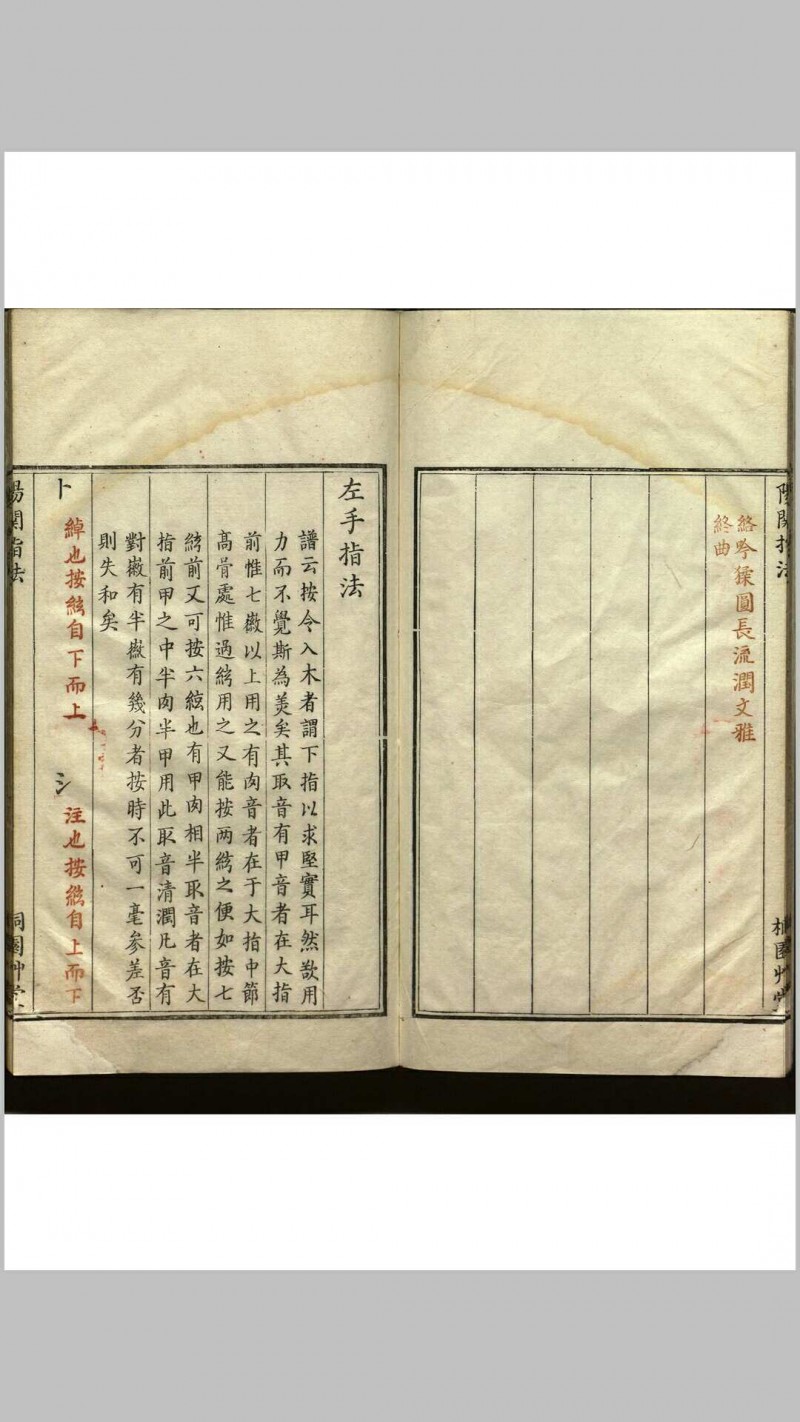 陽關指法
桐園艸堂
絡吟猱圓長流潤文雅
終曲
左手指法
譜云按令入木者謂下指以求堅實耳然欲用
力而不覺斯為美矣其取音有甲音者在大指
前惟七徽以上用之有肉音者在于大指中節
高骨處惟過絃用之又能按兩絃之便如按七
絃前又可按六絃也有甲肉相半取音者在大
指前甲之中半肉半甲用此取音清潤凡音有
對徽有半徽有幾分者按時不可一毫參差否
則失和矣
卜 綽也按絃自下而上 シ 注也按絃自上而下
陽關指法
桐園艸堂